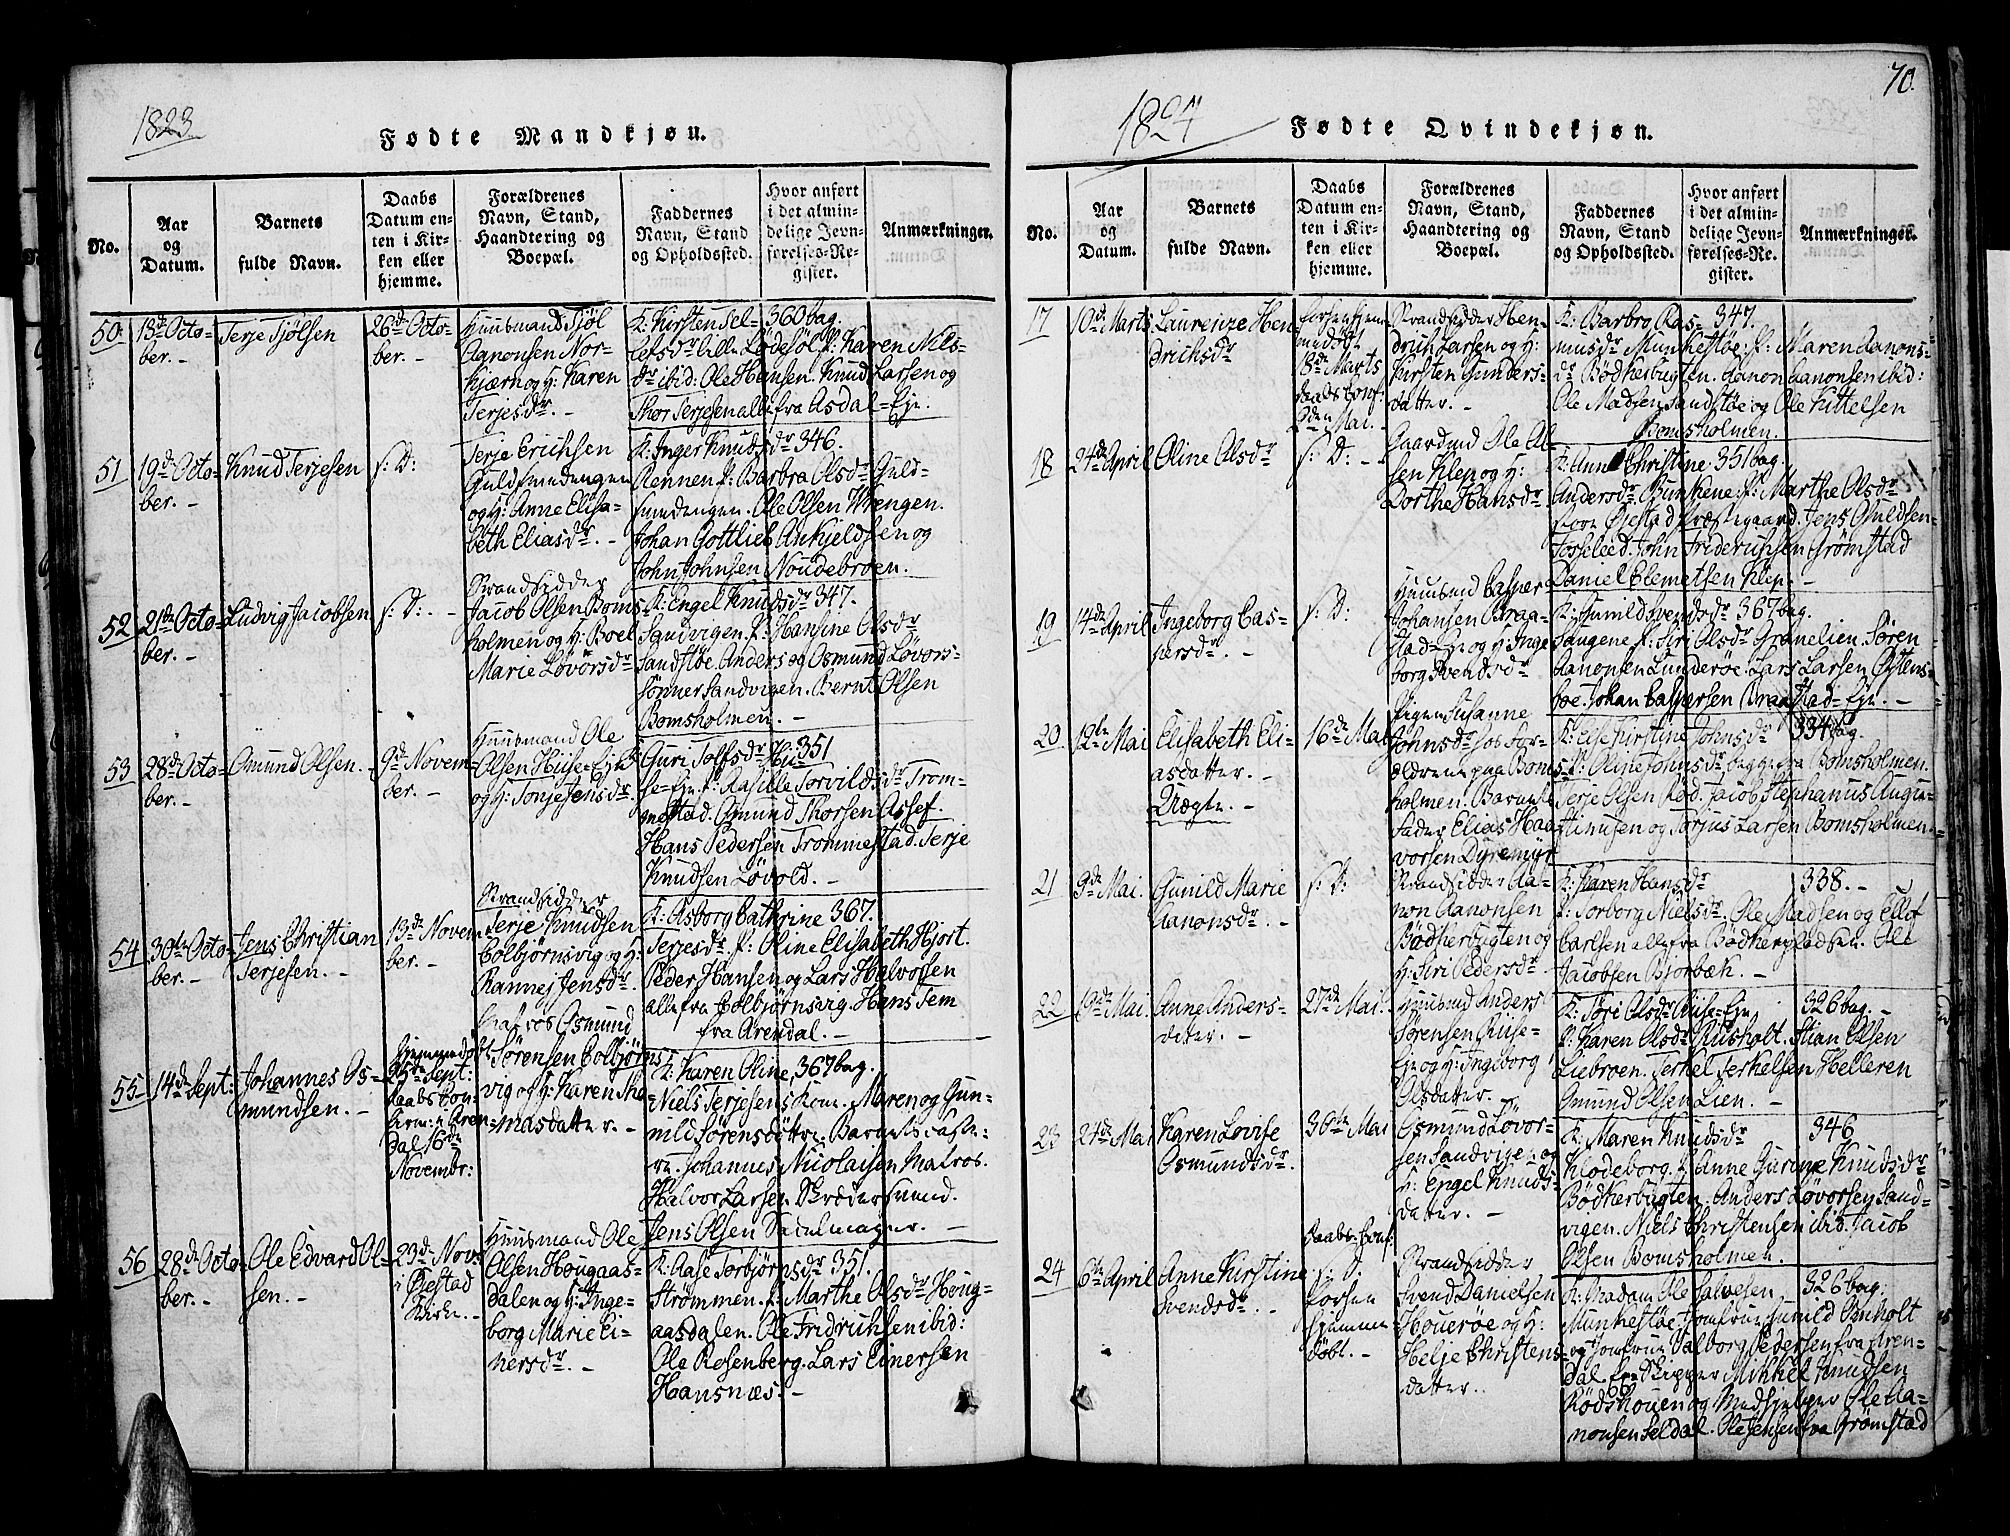 1823.
Fødte Mandkjøn.
No.
Aar
og
Datum.
Barnets
fulde Navn.
Daabs
Datum en-
ten i Kir-
ken eller
hjemme.
Forældrenes
Navn, Stand,
Haandtering og
Boepæl.
Faddernes
Navn, Stand
og Opholdssted.
Hvor anført
i det almin-
delige Jevn-
førelses-Re-
gister.
Anmærkninger.
50.
18de Octo-
ber. -
Terje Tjølsen
26de Octo-
ber. -
Huusmand Tjøl
Aanonsen Nor-
kjærn og H: Karen
Terjesdr. -
K: Kirsten Sel- 360 bag.
lefsdr lille Lødesøl f: Karen Nils-
dr ibid: Ole Hansen. Knud Larsen og
Thor Terjesen alle fra Asdal-Eje.
51
19de Octo-
ber. -
Knud Terjesen
s: D:
Terje Erichsen
Guldsmedengen
og H: Anne Elisa-
beth Eliasdr. -
K: Inger Knudsdr 346.
Rennen f: Barbra Olsdr Guld-
smedengen. Ole Olsen Wrengen.
Johan Gottlieb Ankjeldsen og
John Johnsen Noudebroen.
52
21de Octo-
ber. -
Ludvig Jacobsen
s: D: -
Strandsidder
Jacob Olsen Boms-
holmen og H: Boel
Marie Løvorsdr
K: Engel Knudsdr 347.
Sandvigen. f: Hansine Olsdr
Sandstøe. Anders og Osmund Løvors-
sønner Sandvigen. Bernt Olsen
Bomsholmen. -
53
28de Octo-
ber. -
Omund Olsen. -
9de Novem-
ber. -
Huusmand Ole
Olsen Huse-Eje
og H: Tonje Jensdr.
K: Guri Tolfsdr Hu- 351
se-Eje f: Rasille Torvildsdr Trom-
mestad. Omund Thorsen Assef.
Hans Pedersen Trommestad. Terje
Knudsen Løvold. -
54
30te Octo-
ber. -
Jens Christian
Terjesen. -
13de Novem
ber. -
Strandsidder
Terje Knudsen
Colbjørnsvig og H:
Rannej Jensdr.
K: Asborg Cathrine 367.
Terjesdr f: Oline Elisabeth Hjort.
Peder Hansen og Lars Halvorsen
alle fra Colbjørnsvig. Hans Tem
fra Arendal. -
55
14de Sept:
Johannes Os-
mundsen. -
Hjemmedøbt
25de Sept:
Daabs Con-
firm: i Aren-
dal 16de
Novembr:
Matros Osmund
Sørensen Colbjørns
vig og H: Karen Tho-
masdatter. -
K: Karen Oline, 367 bag.
Niels Terjesens Kone. Maren og Gun-
mild Sørensdøttre. Barnets Faste-
re. Johannes Nicolaisen Matros.
Halvor Larsen Skrædersvend.
Jens Olsen Sadelmager. -
56
28de Octo-
ber. -
Ole Edvard Ol-
sen. -
23de Nov:
i Øiestad
Kirke. -
Huusmand Ole
Olsen Hougaas-
dalen og H: Inge-
borg Marie Ei-
nersdr. -
K: Aase Torbjørnsdr 351.
Strømmen. f: Marthe Olsdr Houg-
aasdalen. Ole Fridrichsen ibid:
Ole Rosenberg. Lars Einersen
Hansnæs. -
70.
1824
Fødte Qvindekjøn.
No.
Aar
og
Datum.
Barnets
fulde Navn.
Daabs
Datum en-
ten i Kir-
ken eller
hjemme.
Forældrenes
Navn, Stand,
Haandtering og
Boepæl.
Faddernes
Navn, Stand
og Opholdssted.
Hvor anført
i det almin-
delige Jevn-
førelses-Re-
gister.
Anmærkninger.
17
10de Marts
Laurenze Hen
drichsdr
medøbt
18de Marts
daabs Conf:
Mai.
Strandsidder Hen-
drich Larsen og H:
Kirsten Gunders-
datter. -
K: Barbro Ras- 347.
musdr Munkestøe. f: Maren Aanons-
dr Bødkerbugten. Aanon Aanonsen ibid:
Ole Madsen Sandstøe og Ole Kittelsen
Bomsholmen.
18
24de April
Oline Olsdr
s: D: -
Gaardmd Ole Ol
sen Klep og H:
Dorthe Hansdr
K: Ann Christine 351 bag.
Andersdr Bunkene f: Marthe Olsdr
Øiestad Præstegaard. Jens Gulldsen
Fosseleed. John Friderichsen Grømstad
Daniel Clemetsen Klep. -
19
14de April
Ingeborg Cas-
persdr. -
s: D:
Huusmd Casper
Johansen Braa-
stad-Eje og H: Inge
borg Svendsdr
K: Gunild Svendsdr 367 bag.
Saugene f: Siri Olsdr Granelien. Søren
Aanonsen Lunderøe. Lars Larsen Østens-
boe. Johan Caspersen Braastad-Eje. -
20
12te Mai
Elisabeth Eli-
asdatter. -
Uægte. -
16de Mai
Pigen Susanne
Johnsdr hos For-
ældrene paa Boms-
holmen. Barnets
Fader Elias Haa
vorsen Dyremyr
K: Else Kirstine Johnsdr 334 bag.
f: Oline Johnsdr begge fra Bomsholmen.
Terje Olsen Rød. Jacob Stephanus Augu-
stinusen og Torjus Larsen Bomsholmen.
21
9de Mai.
Gunild Marie
Aanonsdr. -
s: D:
Strandsidder Aa-
non Aanonsen
Bødkerbugten og
H: Siri Pedersdr
K: Karen Hansdr 338. -
f: Torborg Nielsdr. Ole Madsen og Ellef
Carlsen alle fra Bødkerpladsen. Ole
Jacobsen Bjorbæk. -
22
19de Mai.
Anne Anders-
datter. -
27de Mai.
Huusmd Anders
Sørensen Rise-
Eje og H: Ingeborg
Olsdatter. -
K: Tøri Olsdr Riise-Eje 326 bag. -
f: Karen Olsdr Rusholt. Stian Olsen
Liebroen. Terkel Terkelsen Helleren
Omund Olsen Lien. -
23
24de Mai
Karen Lovise
Osmundsdr.
30te Mai
Osmund Løvor-
sen Sandvigen og
H: Engel Knuds-
datter. -
K: Maren Knudsdr 346
Klodeborg. f: Anne Gurine Knudsdr
Bødkerbugten. Anders Løvorsen Sand-
vigen. Niels Christensen ibid. Jacob
Olsen Bomsholmen.
24
6te April
Anne Kirstine
Svendsdr. -
Daabs-Conf:
s: D:
forhen
hjemme-
døbt. -
Strandsidder
Svend Danielsen
Houerøe og H:
Helje Christens-
datter.
K: Madam Ole Salvesen, 326 bag.
Munkestøe. Jomfrue Gunild Omholt
og Jomfrue Valborg Pedersen fra Aren-
dal. Skipper Mikkel Knudsen
Rødskouen og Medhjelper Ole Aa-
nonsen Seldal. Ole Jensen fra Grømstad